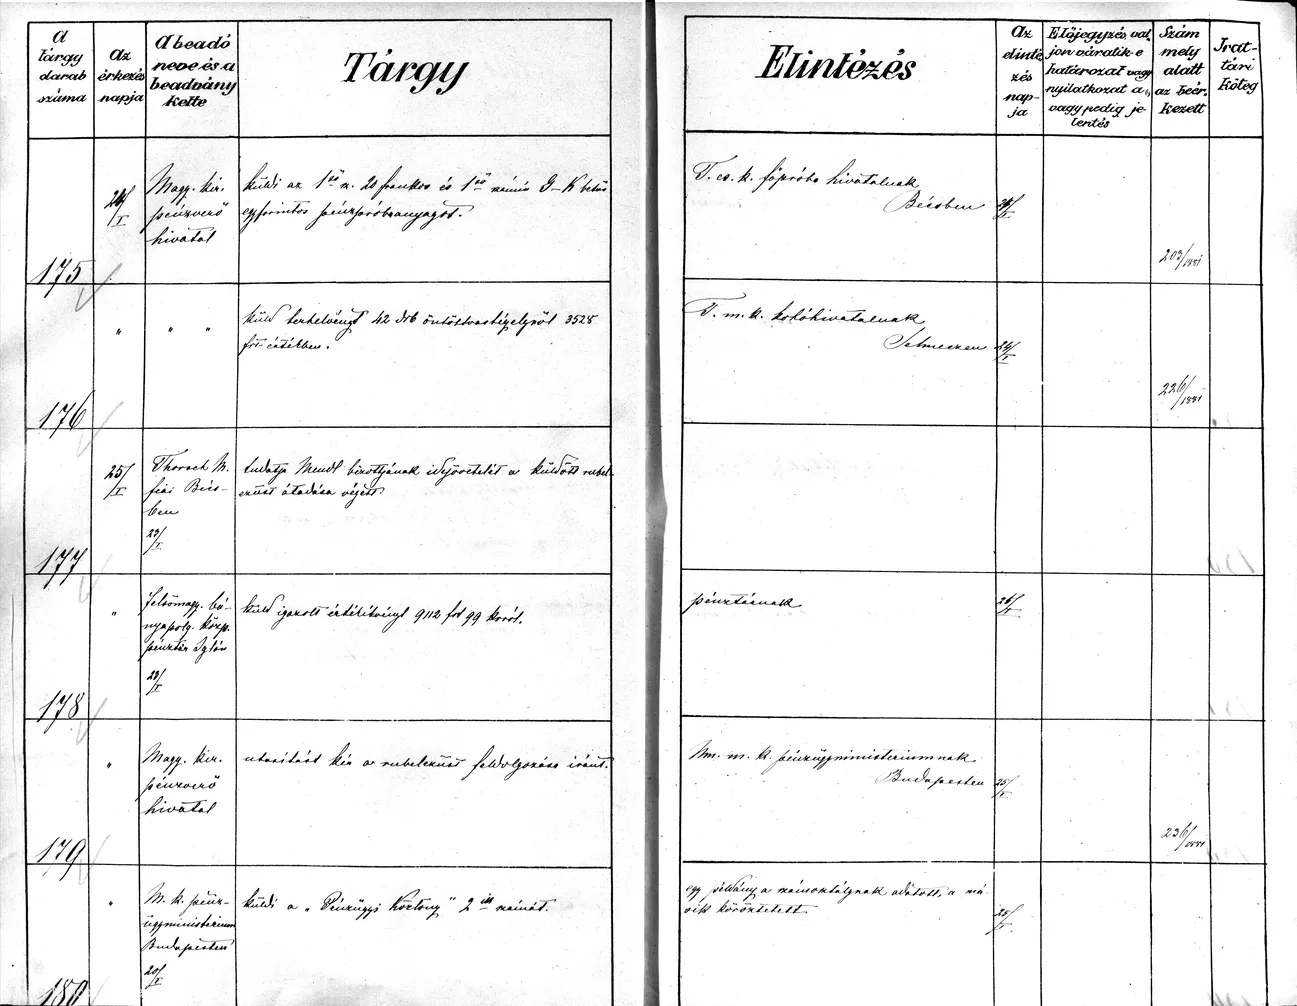 A tárgy darab száma
Az érkezés napja
A beadó neve és a beadvány kelte
Tárgy
Elintézés
Az elintézés napja
Előjegyzés, valjon váratik-e határozat vagy nyilatkozat a, vagy pedig jelentés
Szám mely alatt az beérkezett
Irattári köteg
175
24/I
Magy. kir.
pénzverő
hivatal
küldi az 1ső sz. 20 frankos és 1ső számú G-K betűs
egyforintos pénzpróbaanyagot.
T. cs. k. főpróba hivatalnak
Bécsben
24/I
203/1881
176
" " "
küld térhelvényt 42 drb öntöttvastégelyről 3528
frt értékben.
T. m. k. kohóhivatalnak
Selmeczen
24/I
226/1881
177
25/I
M.
fiai Bécs-
ben
23/I
tudatja Mendl bizottjának idejövetelét a küldött rubel-
ezüst átadása végett
178
"
felsőmagy. bá-
nyapolg. közp.
pénztár Iglón
23/I
küld igazolt értérítvényt 9112 frt 99 króról.
pénztárnak
26/I
179
"
Magy. kir.
pénzverő
hivatal
utasítást kér a rubelezüst feldolgozása iránt.
Nm. m. k. pénzügyministeriumnak
Budapesten
25/I
236/1881
180
"
M. k. pénz-
ügyministerium
Budapesten
20/I
küldi a „Pénzügyi Közlöny" 2ik számát.
egy példány a számosztálynak adatott, a má-
sik köröztetett
25/I